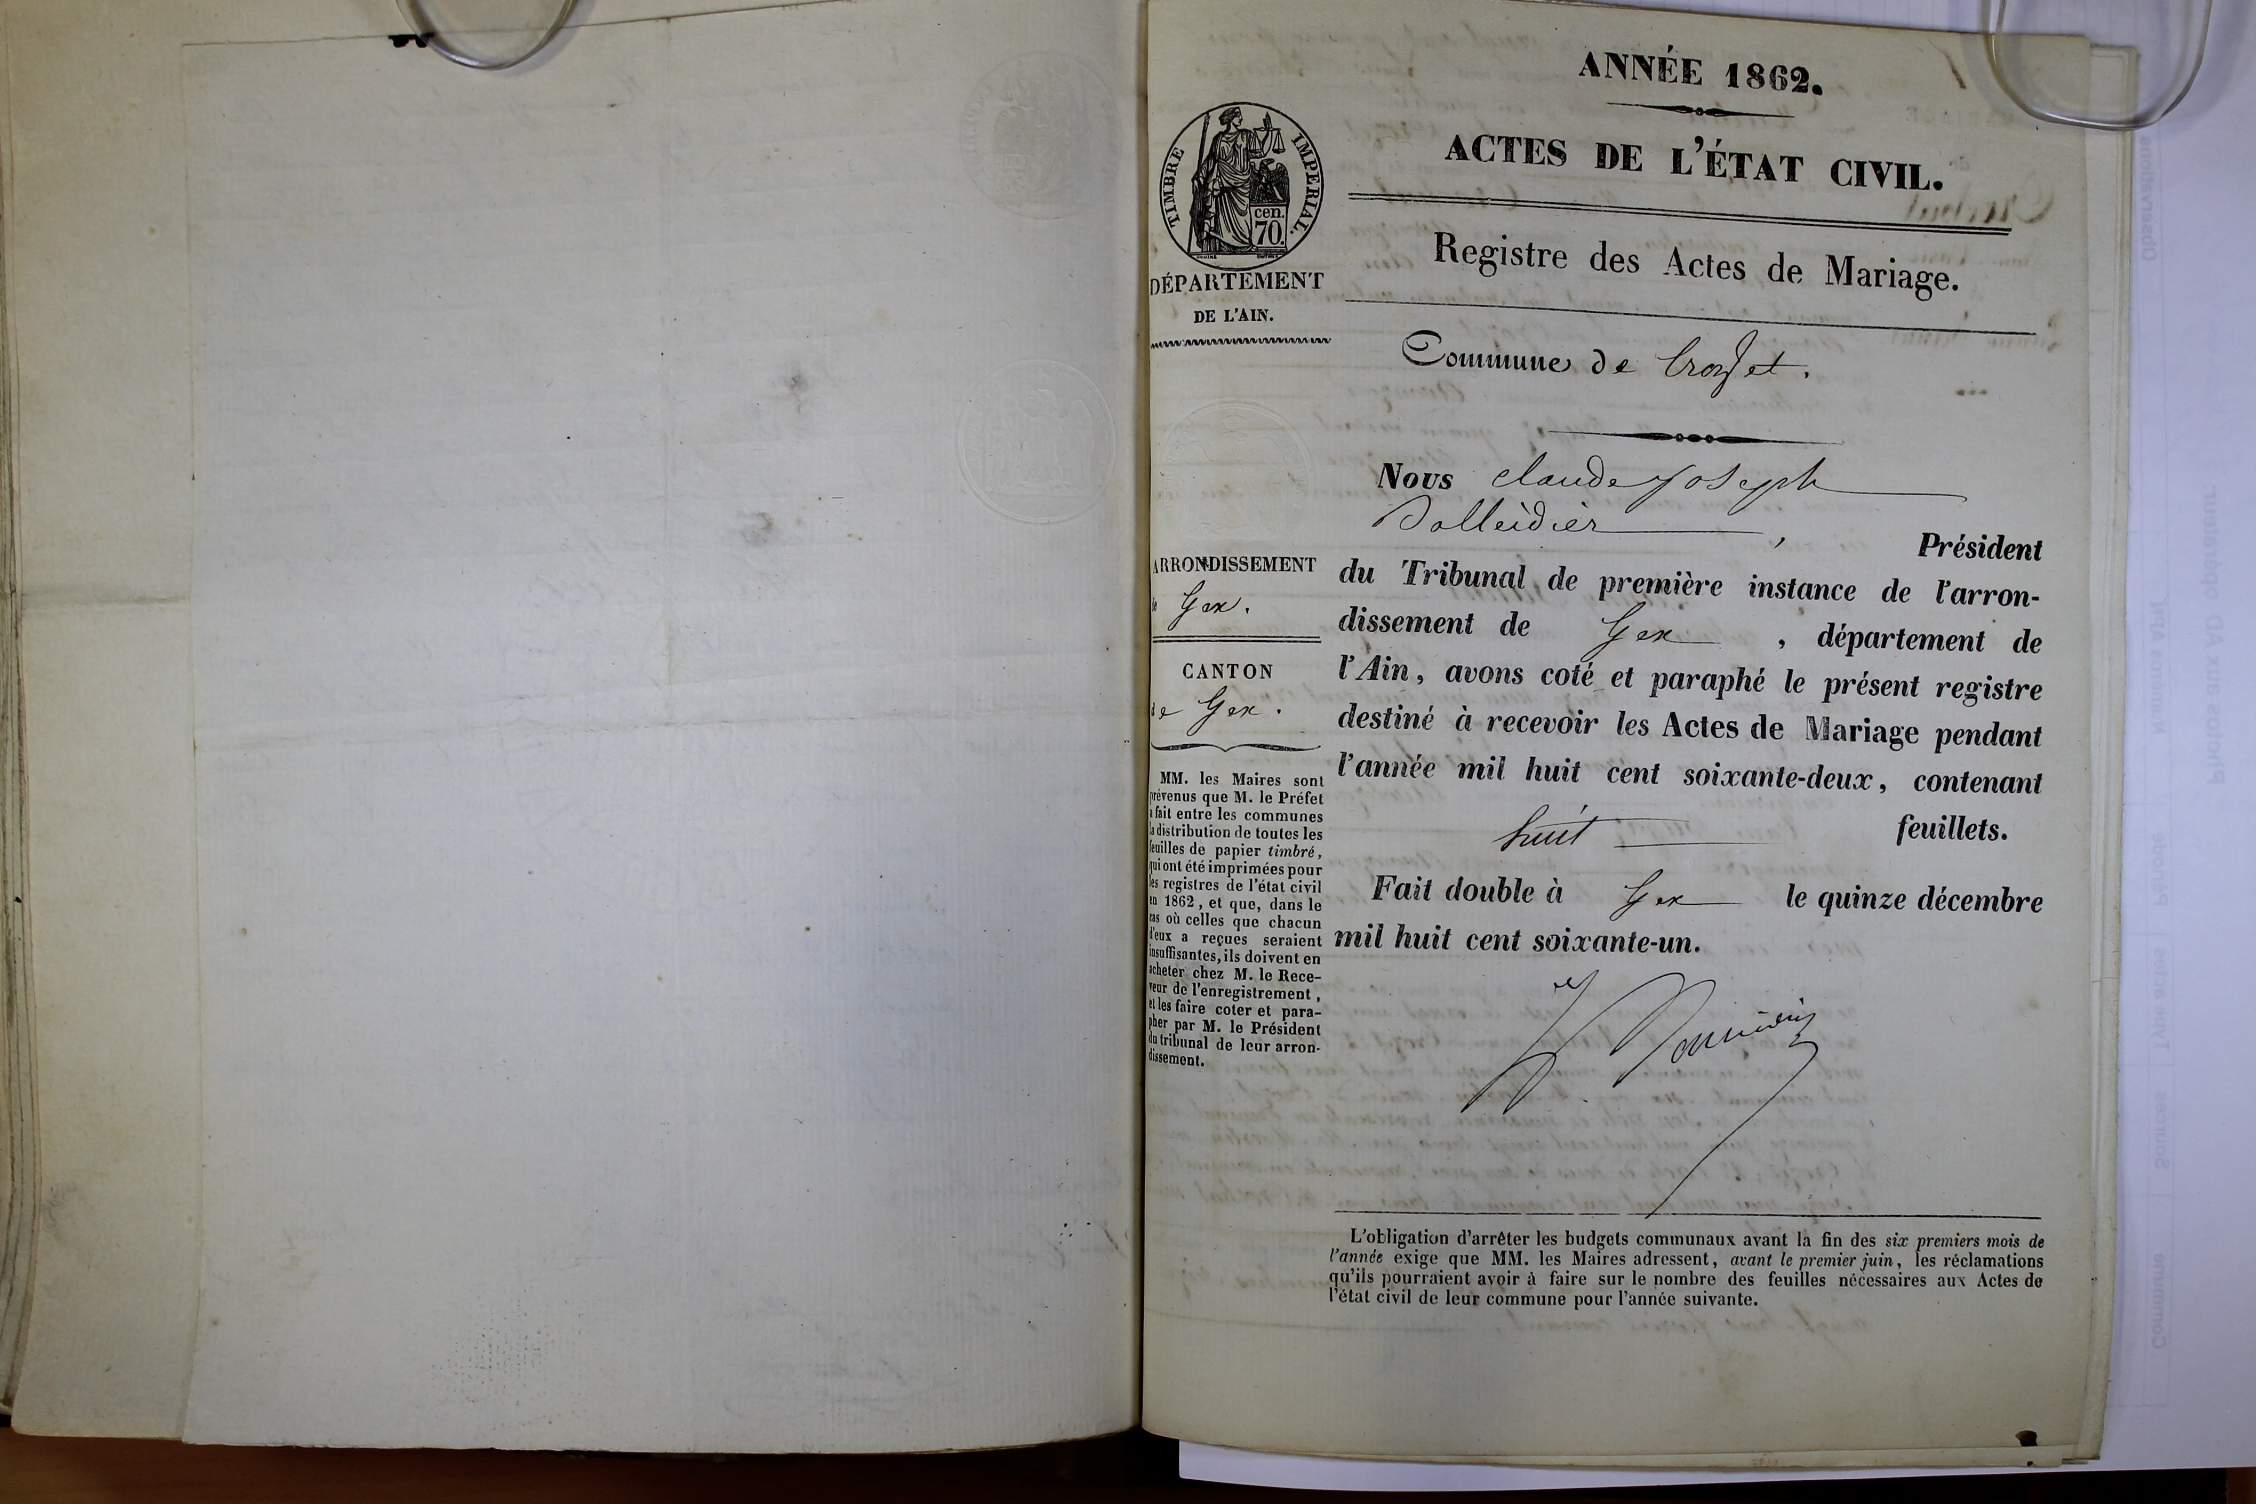 ANNÉE 1862.
ACTES DE L'ÉTAT CIVIL.
Registre des Actes de Mariage.
TIMBRE IMPERIAL.
cen.
70.
DÉPARTEMENT
DE L'AIN.
Commune de Crozet.
ARRONDISSEMENT
de Gex.
CANTON
de Gex.
MM. les Maires sont
prévenus que M. le Préfet
a fait entre les communes
la distribution de toutes les
feuilles de papier timbré,
qui ont été imprimées pour
les registres de l'état civil
en 1862, et que, dans le
cas où celles que chacun
d'eux a reçues seraient
insuffisantes, ils doivent en
acheter chez M. le Rece-
veur de l'enregistrement,
et les faire coter et para-
pher par M. le Président
du tribunal de leur arron-
dissement.
Nous Claude Joseph
, Président
du Tribunal de première instance de l'arron-
dissement de Gex, département de
l'Ain, avons coté et paraphé le présent registre
destiné à recevoir les Actes de Mariage pendant
l'année mil huit cent soixante-deux, contenant
huit feuillets.
Fait double à Gex le quinze décembre
mil huit cent soixante-un.
L'obligation d'arrêter les budgets communaux avant la fin des six premiers mois de
l'année exige que MM. les Maires adressent, avant le premier juin, les réclamations
qu'ils pourraient avoir à faire sur le nombre des feuilles nécessaires aux Actes de
l'état civil de leur commune pour l'année suivante.